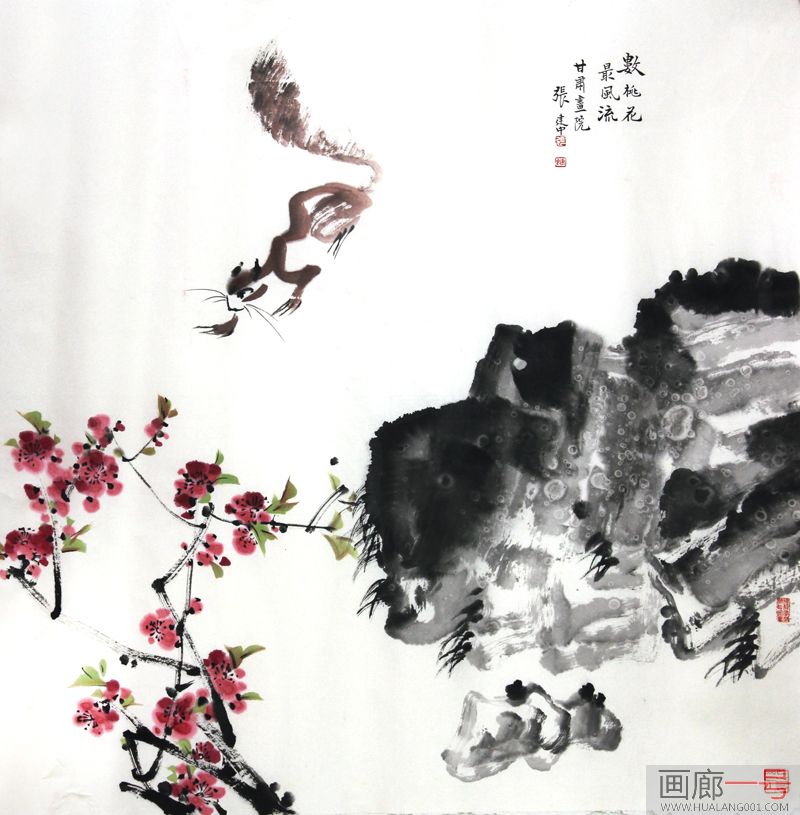 數桃花
最風流
甘肅畫院
張建中
画廊一号
WWW.HUALANG001.COM